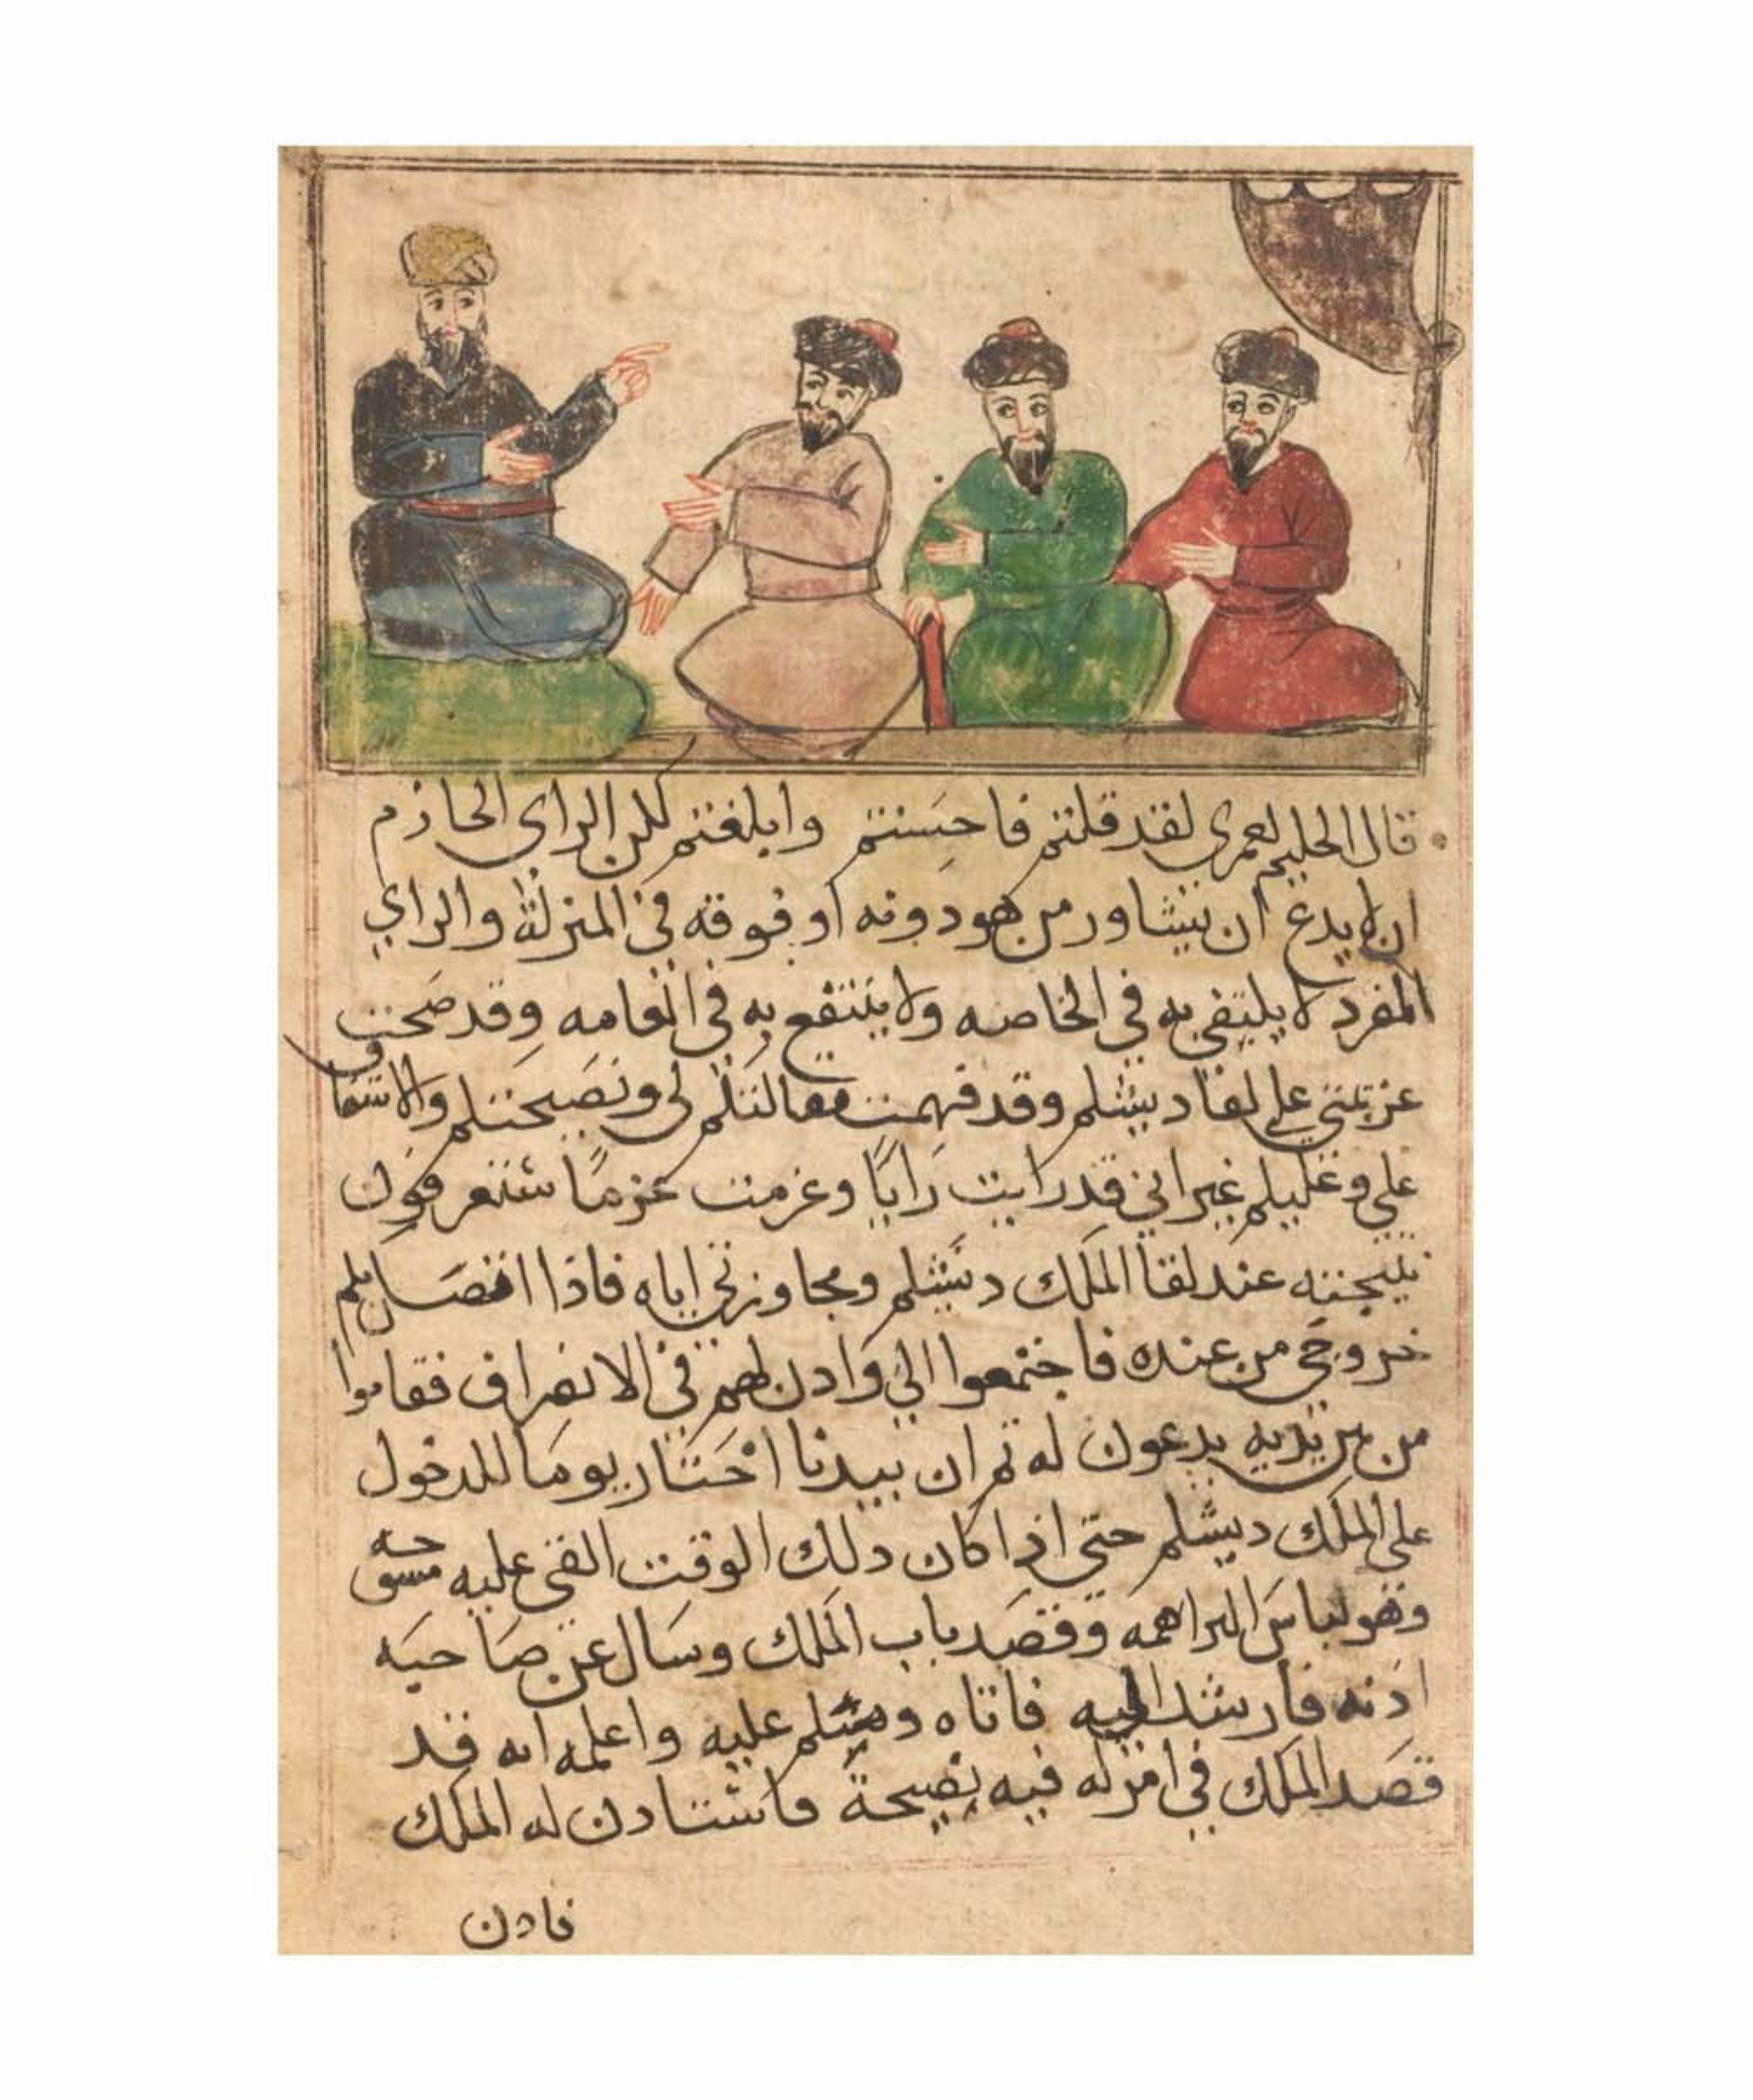 قال الحليم لعمري لقد قلتم فاحسنتم وابلغتم لكن الراي الحازم
ان لا يدع ان يشاور من هو دونه او فوقه في المنزلة والراي
المفرد لا يكتفي به في الخاصه ولا ينتفع به في العامه وقد صحت
عزيمتي علي لقا دبشلم وقد فهمت مقالتكم لي ونصيحتكم والاشفاق
علي وعليكم غير اني قد رايت رايًا وعزمت عزمًا ستعرفون
نتيجته عند لقا الملك دبشلم ومجاوزتي اياه فاذا اتصل بكم
خروجي من عنده فاجتمعوا الي وادن لهم في الانصراف فقاموا
من بين يديه يدعون له تم ان بيدبا اختار يوما للدخول
علي الملك دبشلم حتي اذا كان دلك الوقت القي عليه مسوحه
وهو لباس البراهمه وقصد باب الملك وسال عن صاحبه
ادنه فارشد اليه فاتاه وسلم عليه واعلمه انه قد
قصد الملك في امر له فيه نصيحة فاستادن له الملك
فادن